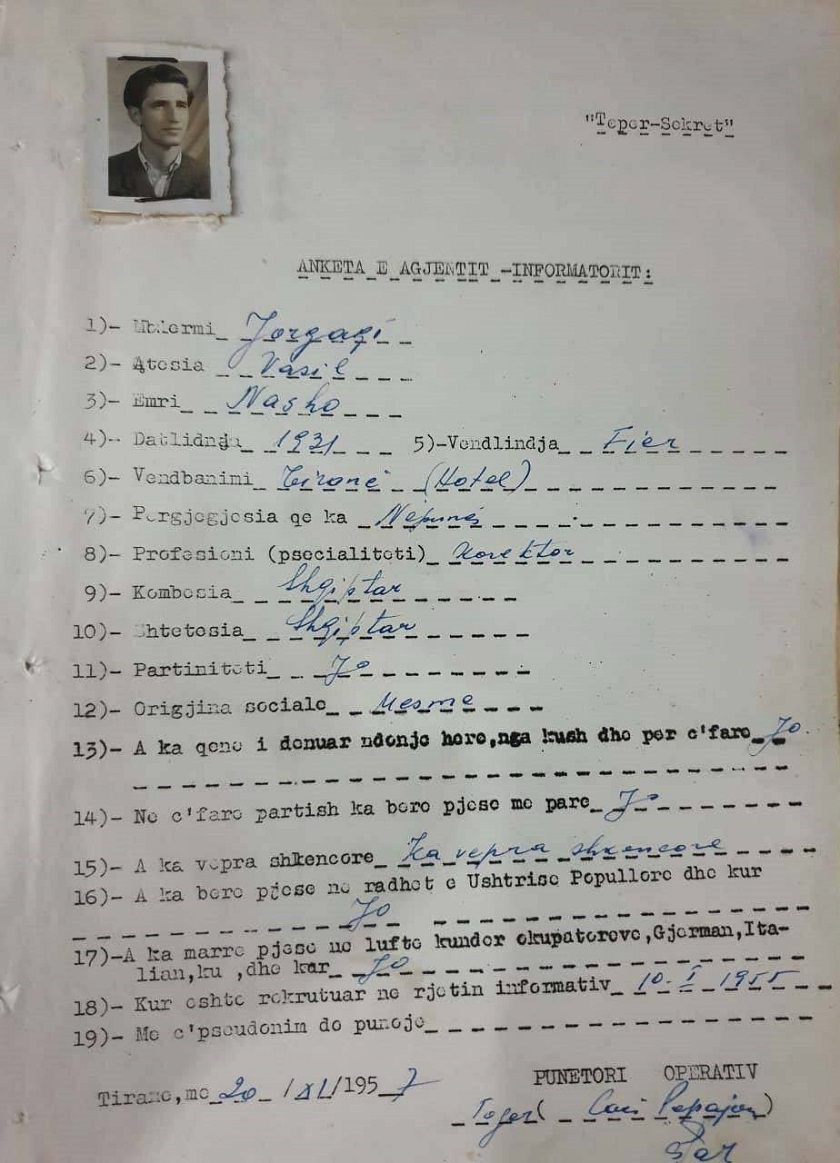 "Teper-Sekret"
ANKETA E AGJENTIT -INFORMATORIT:
1)- Mbiermi Jorgaqi
2)- Atesia Vasil
3)- Emri Nasho
4)- Datlidnja 1931 5)-Vendlindja Fier
6)- Vendbanimi Tiranë (Hotel)
7)- Pergjegjesia qe ka Nepunës
8)- Profesioni (psecialiteti) Korektor
9)- Kombesia Shqiptar
10)- Shtetesia Shqiptar
11)- Partiniteti Jo
12)- Origjina sociale Mesme
13)- A ka qene i denuar ndonje here,nga kush dhe per c'fare Jo.
14)- Ne c'fare partish ka bere pjese me pare Jo
15)- A ka vepra shkencore Ka vepra shkencore
16)- A ka bere pjese ne radhet e Ushtrise Popullore dhe kur
Jo
17)-A ka marre pjese ne lufte kunder okupatoreve,Gjerman,Ita-
lian,ku ,dhe kur Jo
18)- Kur eshte rekrutuar ne rjetin informativ 10-I-1955
19)- Me c'pseudonim do punoje
PUNETORI OPERATIV
Tirane,me 20 /XI/1957
Toger( )